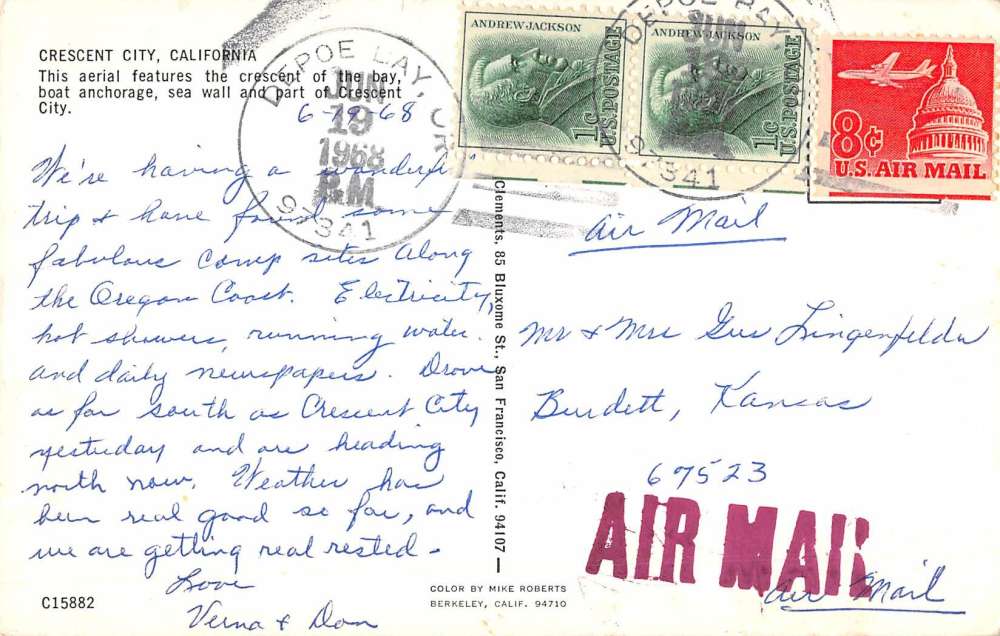 CRESCENT CITY, CALIFORNIA
This aerial features the crescent of the bay,
boat anchorage, sea wall and part of Crescent
City.
6-19-68
We're having a wonderful
trip & have found some
fabulous camp sites along
the Oregon Coast. Electricity,
hot showers, running water
and daily newspapers. Drove
as far south as Crescent City
yesterday and are heading
north now. Weather has
been real good so far, and
we are getting real rested -
Love
Verna & Don
C15882
DEPOE BAY, OR
JUN
19
1968
P.M.
97341
ANDREW JACKSON
1¢
U.S. POSTAGE
ANDREW JACKSON
1¢
U.S. POSTAGE
DEPOE BAY,
JUN
97341
8¢
U.S. AIR MAIL
Clements, 85 Bluxome St., San Francisco, Calif. 94107 —
Air Mail
Mr & Mrs Gus Lingenfelder
Burdett, Kansas
67523
AIR MAIL
Air Mail
COLOR BY MIKE ROBERTS
BERKELEY, CALIF. 94710